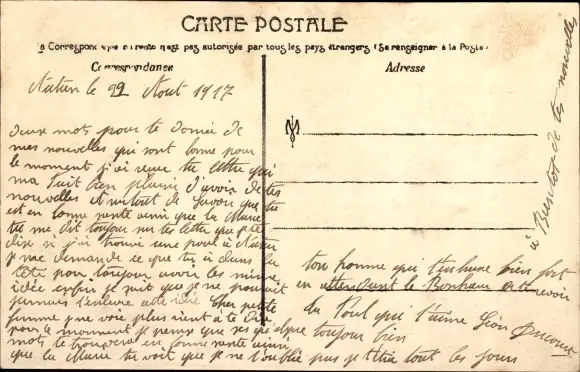 CARTE POSTALE
La Correspondance au recto n'est pas autorisée par tous les pays étrangers (Se renseigner à la Poste)
Correspondance
Adresse
le 22 Aout 1917
deux mots pour te donné de
mes nouvelles qui sont bonne pour
le moment j'ai reçue ta lettre qui
ma fait bien plaisir d'avoir de tes
nouvelles et surtout de savoir que tu
est en bonne sente ainsi que la
tu me dit toujour sur tes letter que je te
dise si j'ai trouvé une poul à
je me demande ce que tu à dans la
tête pour toujour avoir les même
idée enfin je voit que je ne pourrait
jamais t'enlevé cette idée Cher petite
femme je ne voie plus rient à te dire
pour le moment je pense que ses quelque
mots te trouvera en bonne sente ainsi
que la tu voit que je ne t'oublie pas je t'écrie tout les jours
ton homme qui t'embrasse bien fort
en attendant le Bonheur de te revoir
du Poul qui t'aime Léon
pour toujour bien
à Bientot de tes nouvelles